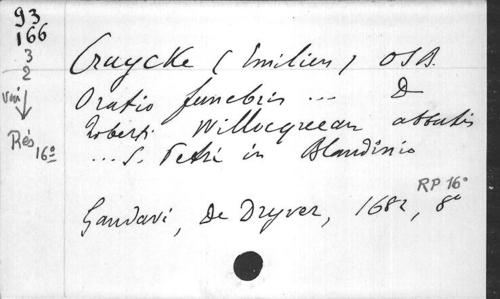 93
166
3
2
voir
Rés
16º
Cruycke (Emilien) OSB.
Oratio funebris ... D
Roberti Willocqueau abbatis
... S. Petri in Blandinio
RP 16º
Gandavi, De Dryver, 1682, 8º